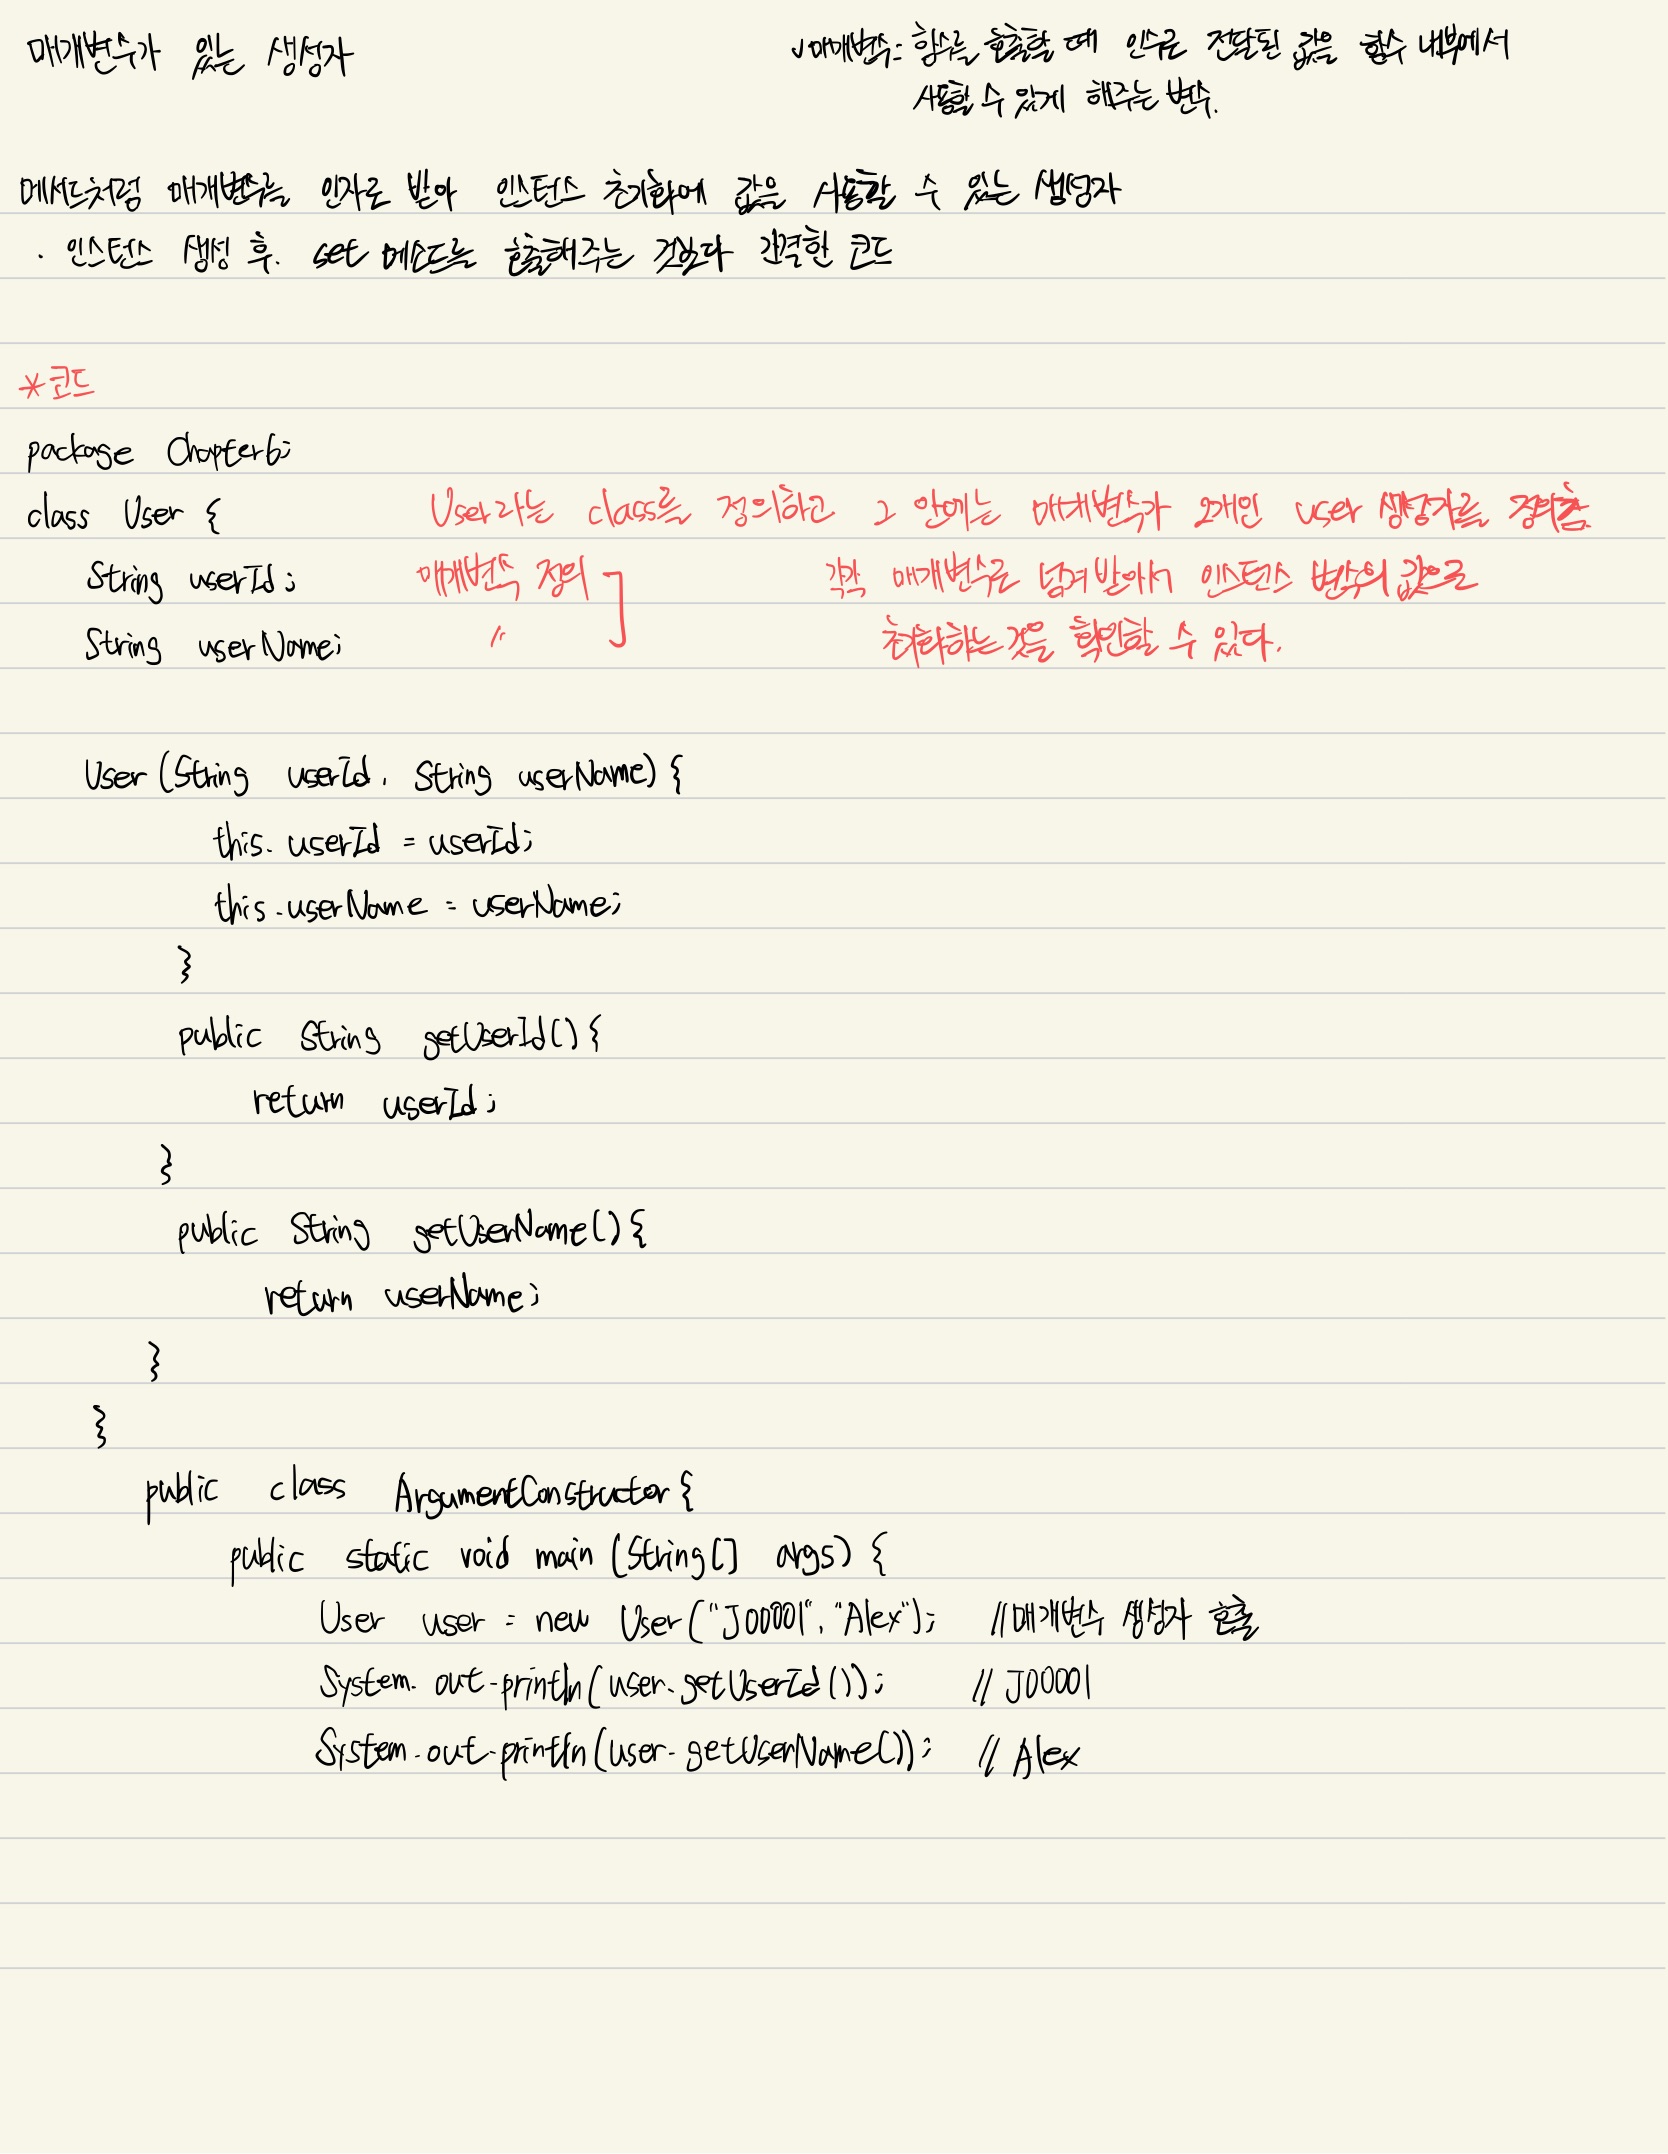 매개변수가 있는 생성자
✓매개변수: 함수를 호출할 때 인수로 전달된 값을 함수 내부에서
사용할 수 있게 해주는 변수.
메서드처럼 매개변수를 인자로 받아 인스턴스 초기화에 값을 사용할 수 있는 생성자
· 인스턴스 생성 후. set 메소드를 호출해주는 것보다 간결한 코드
*코드
package Chapter6;
class User {
User라는 class를 정의하고 그 안에는 매개변수가 2개인 user 생성자를 정의함.
String userId;
매개변수 정의
각각 매개변수로 넘겨받아서 인스턴스 변수의 값으로
String userName;
〃
초기화하는 것을 확인할 수 있다.
User (String userId, String userName) {
this.userId = userId;
this.userName = userName;
}
public String getUserId() {
return userId;
}
public String getUserName() {
return userName;
}
}
public class ArgumentConstructor {
public static void main (String[] args) {
User user = new User("J00001", "Alex"); //매개변수 생성자 호출
System.out.println(user.getUserId()); // J00001
System.out.println(user.getUserName()); // Alex